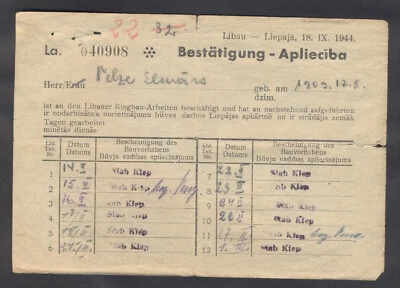 22 32
Libau — Liepaja, 18. IX. 1944.
La. 040908 ✻ Bestätigung - Apliecība
Herr/Frau Pelze Elmārs geb. am 1909. 12. 8.
dzim.
ist an den Libauer Ringbau-Arbeiten beschäftigt und hat an nachstehend aufgeführten
ir nodarbināts nocietinājumu būves darbos Liepājas apkārtnē un ir strādājis zemāk
Tagen gearbeitet
minētās dienās
Lfd. Tek. Nr. Datum Datums Bescheinigung des Bauvorhabens Būvju vadības apliecinājums Lfd. Tek. Nr. Datum Datums Bescheinigung des Bauvorhabens Būvju vadības apliecinājums
1 14. II Stab Kiep 7 22. II Stab Kiep
2 15. II Stab Kiep 8 23. II Stab Kiep
3 II Stab Kiep 9 24. II Stab Kiep
4 II Stab Kiep 10 26. II Stab Kiep
5 II Stab Kiep 11 II Stab Kiep
6 II Stab Kiep 12 1. III Stab Kiep